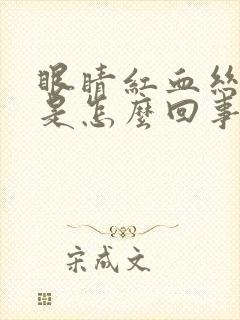 眼睛紅血絲
是怎麼回事
宋成文